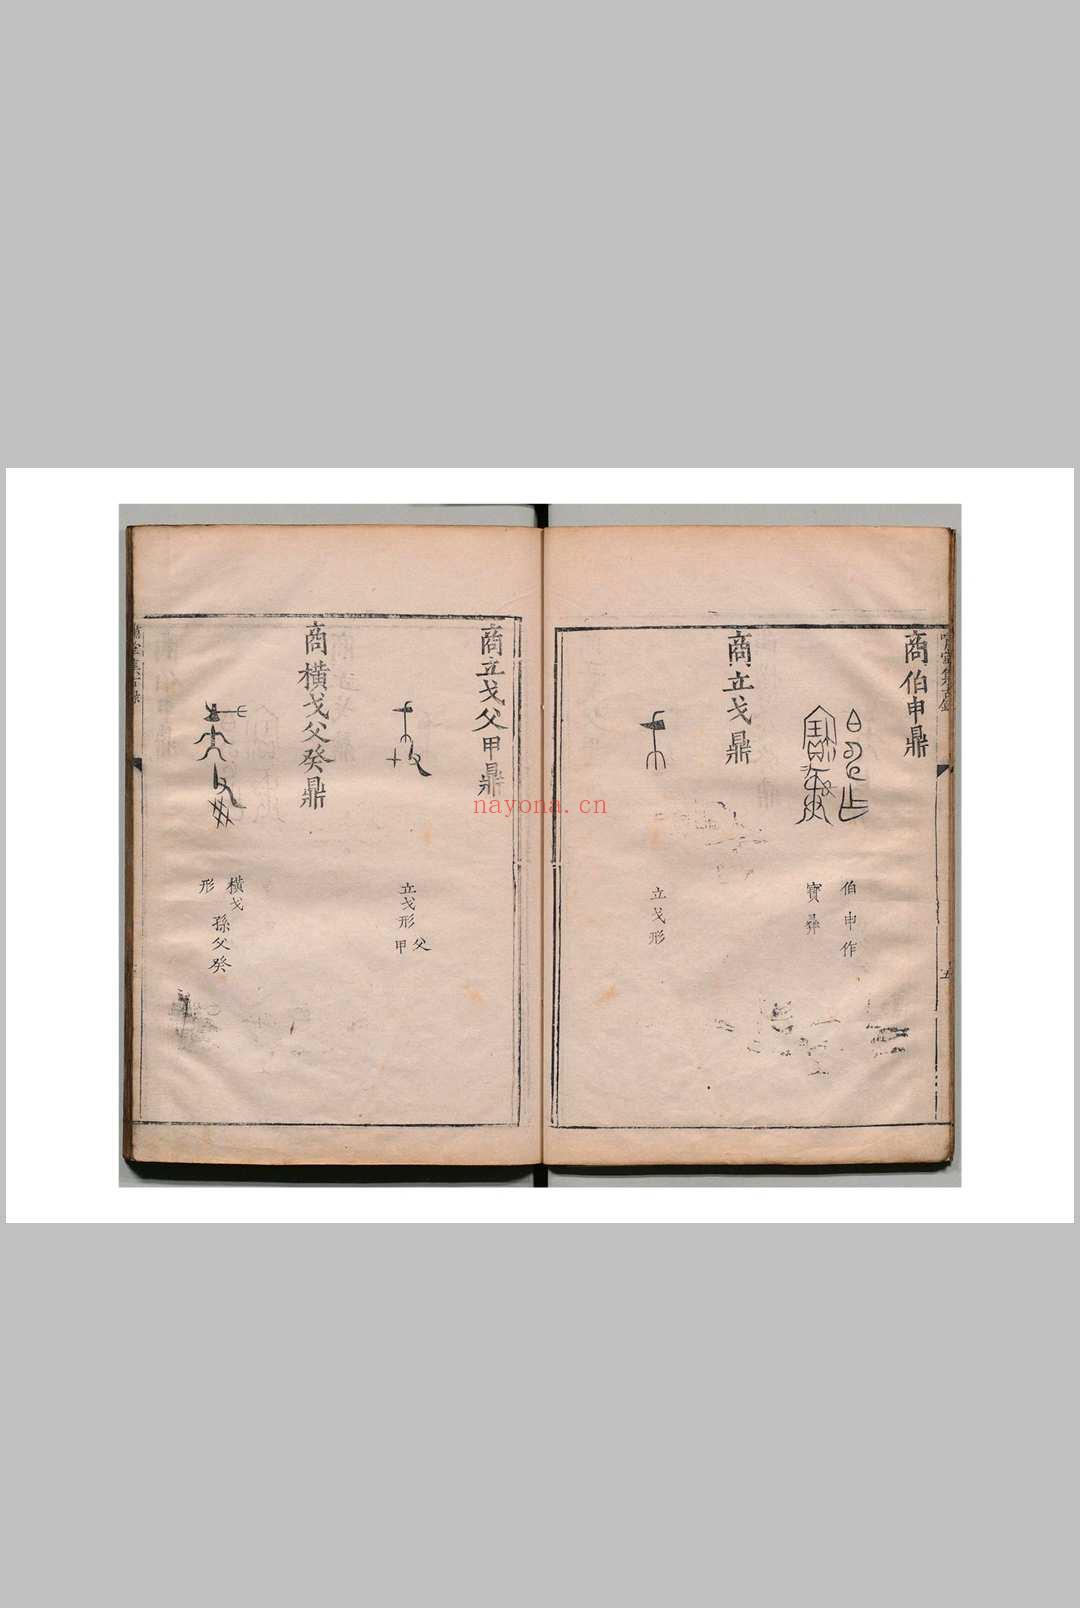 商伯申鼎
伯申作
寶彝
商立戈鼎
立戈形
商立戈父甲鼎
立戈形父
甲
商橫戈父癸鼎
橫戈
形
孫父癸
嘯堂集古錄
五
nayona.cn